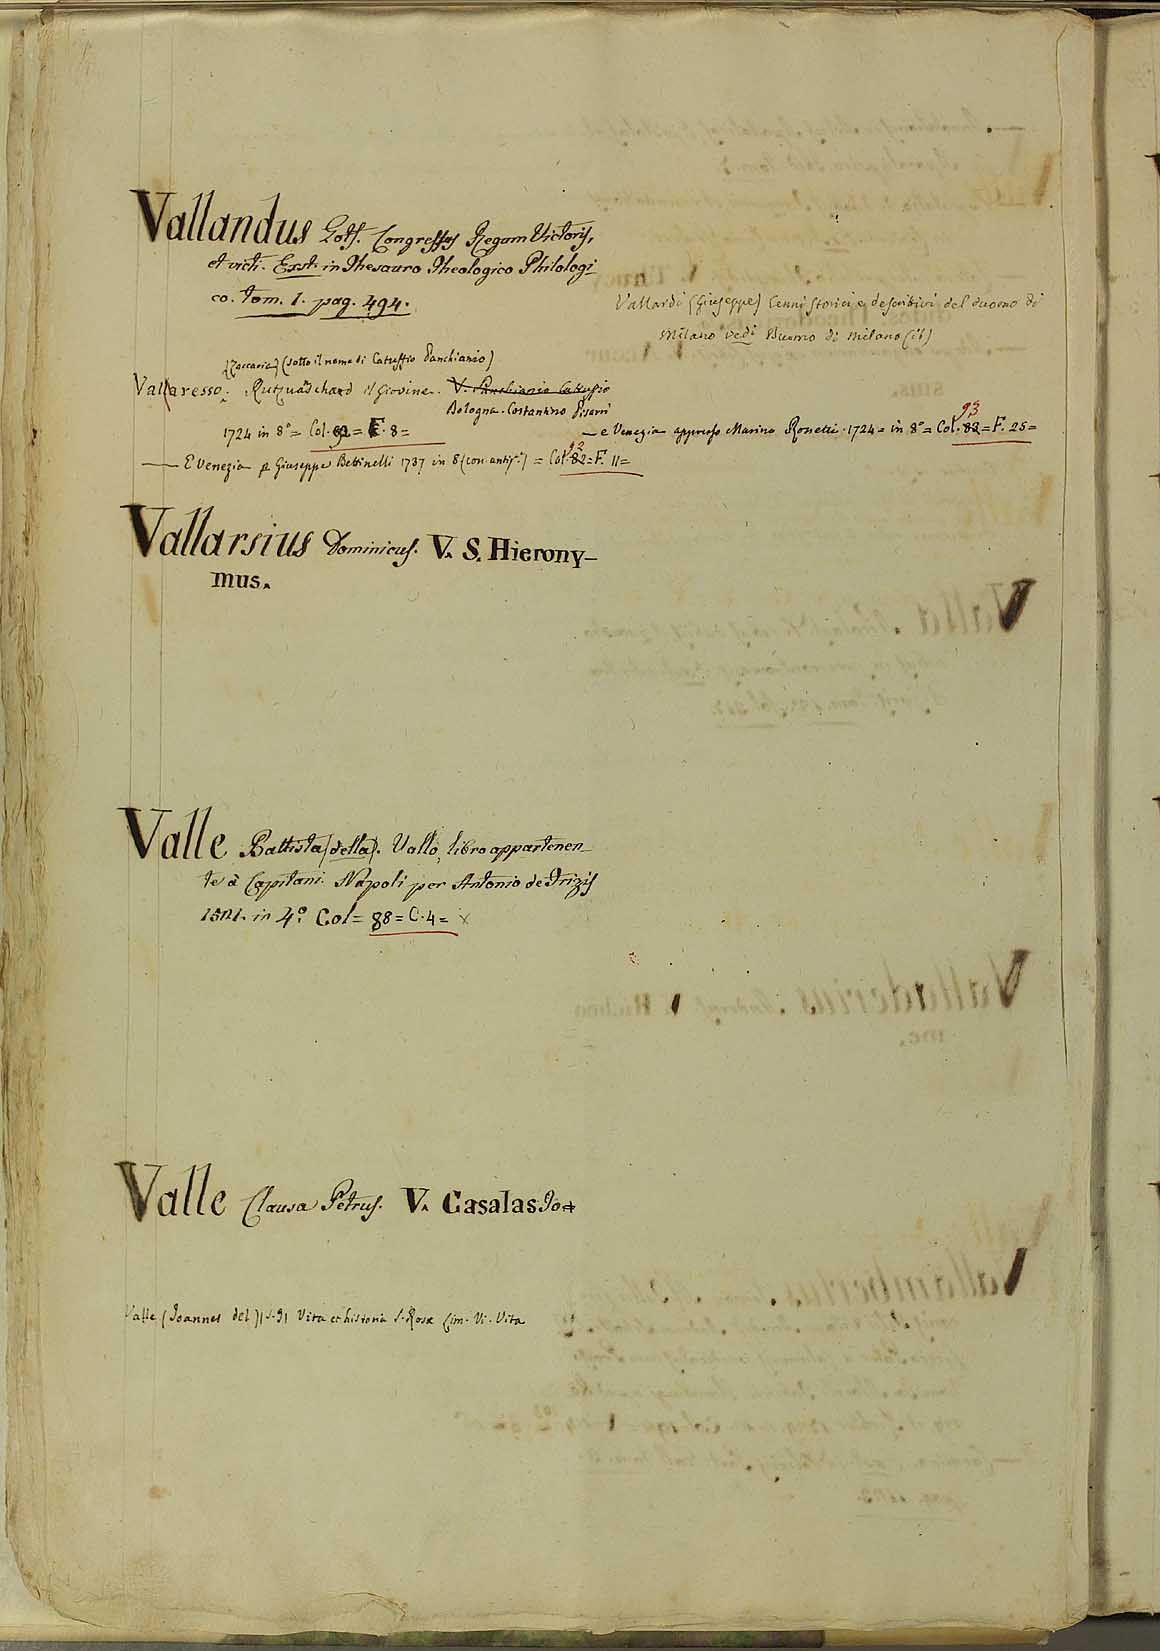 Vallandus Gotf. Congressus Regum Victoris,
et victi. Exst. in Thesauro Theologico Philologi
co. tom. 1. pag. 494.
Vallardi (Giuseppe) Cenni storici e descrittivi del duomo di
Milano vedi Duomo di Milano (il)
(Zaccaria) (sotto il nome di Catuffio Panchianio)
Vallaresso. Rutzvanschad il Giovine. V. Panchianio Catuffio
Bologna. Costantino Pisarri
1724 in 8° = Col. = F. 8 =
— e Venezia appresso Marino Rossetti. 1724 = in 8° = Col. 82 = F. 25 =
93
— E Venezia p Giuseppe Bettinelli 1737 in 8 (con antip.) = Col. 82 = F. 11 =
92
Vallarsius Dominicus. V. S. Hierony-
mus.
Valle Battista (della). Vallo, libro appartenen-
te à Capitani. Napoli per Antonio de Frizis
1521. in 4°: Col = 88 = C. 4 = x
Valle Clausa Petrus. V. Casalas Jo
Valle (Joannes del) Vita et historia S. Rosæ Lim. Vi. Vita